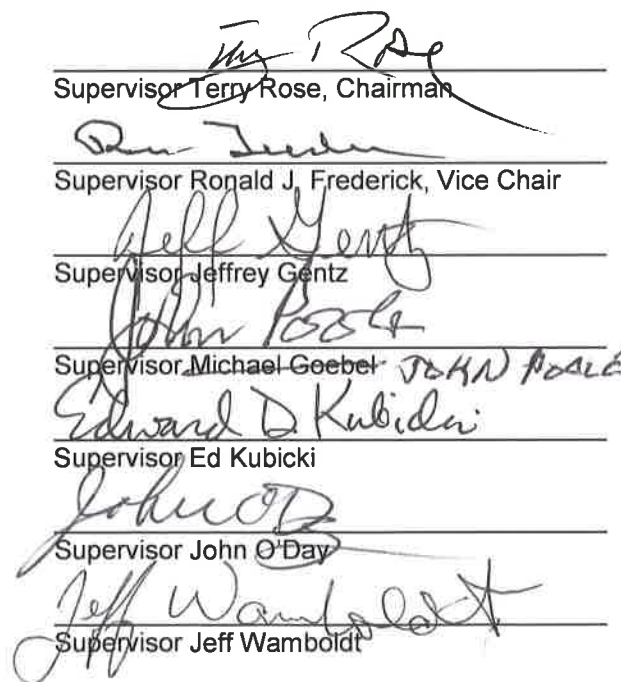 Terry Rose
Supervisor Terry Rose, Chairman
Supervisor Ronald J. Frederick, Vice Chair
Jeff Gentz
Supervisor Jeffrey Gentz
John Poole
Supervisor Michael Goebel JOHN POOLE
Edward D. Kubicki
Supervisor Ed Kubicki
John O'D
Supervisor John O'Day
Jeff Wamboldt
Supervisor Jeff Wamboldt